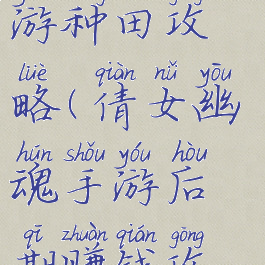 游种田攻
lüè qiàn nǚ yōu
略(倩女幽
hún shǒu yóu hòu
魂手游后
qī zhuàn qián gōng
期赚钱攻